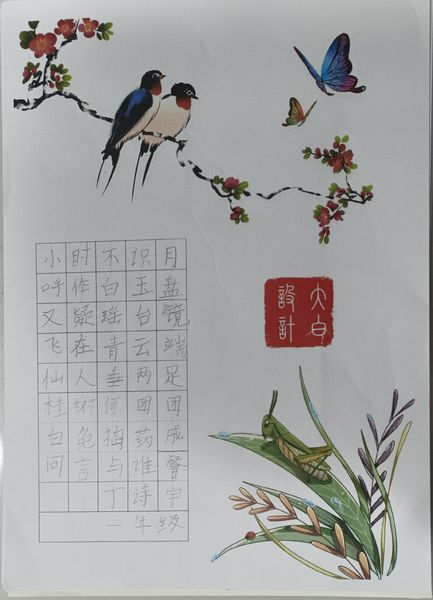 小时不识月
呼作白玉盘
又疑瑶台镜
飞在青云端
仙人垂两足
桂树何团团
白兔捣药成
问言与谁餐
丁诗宇
一年级
大白
設計